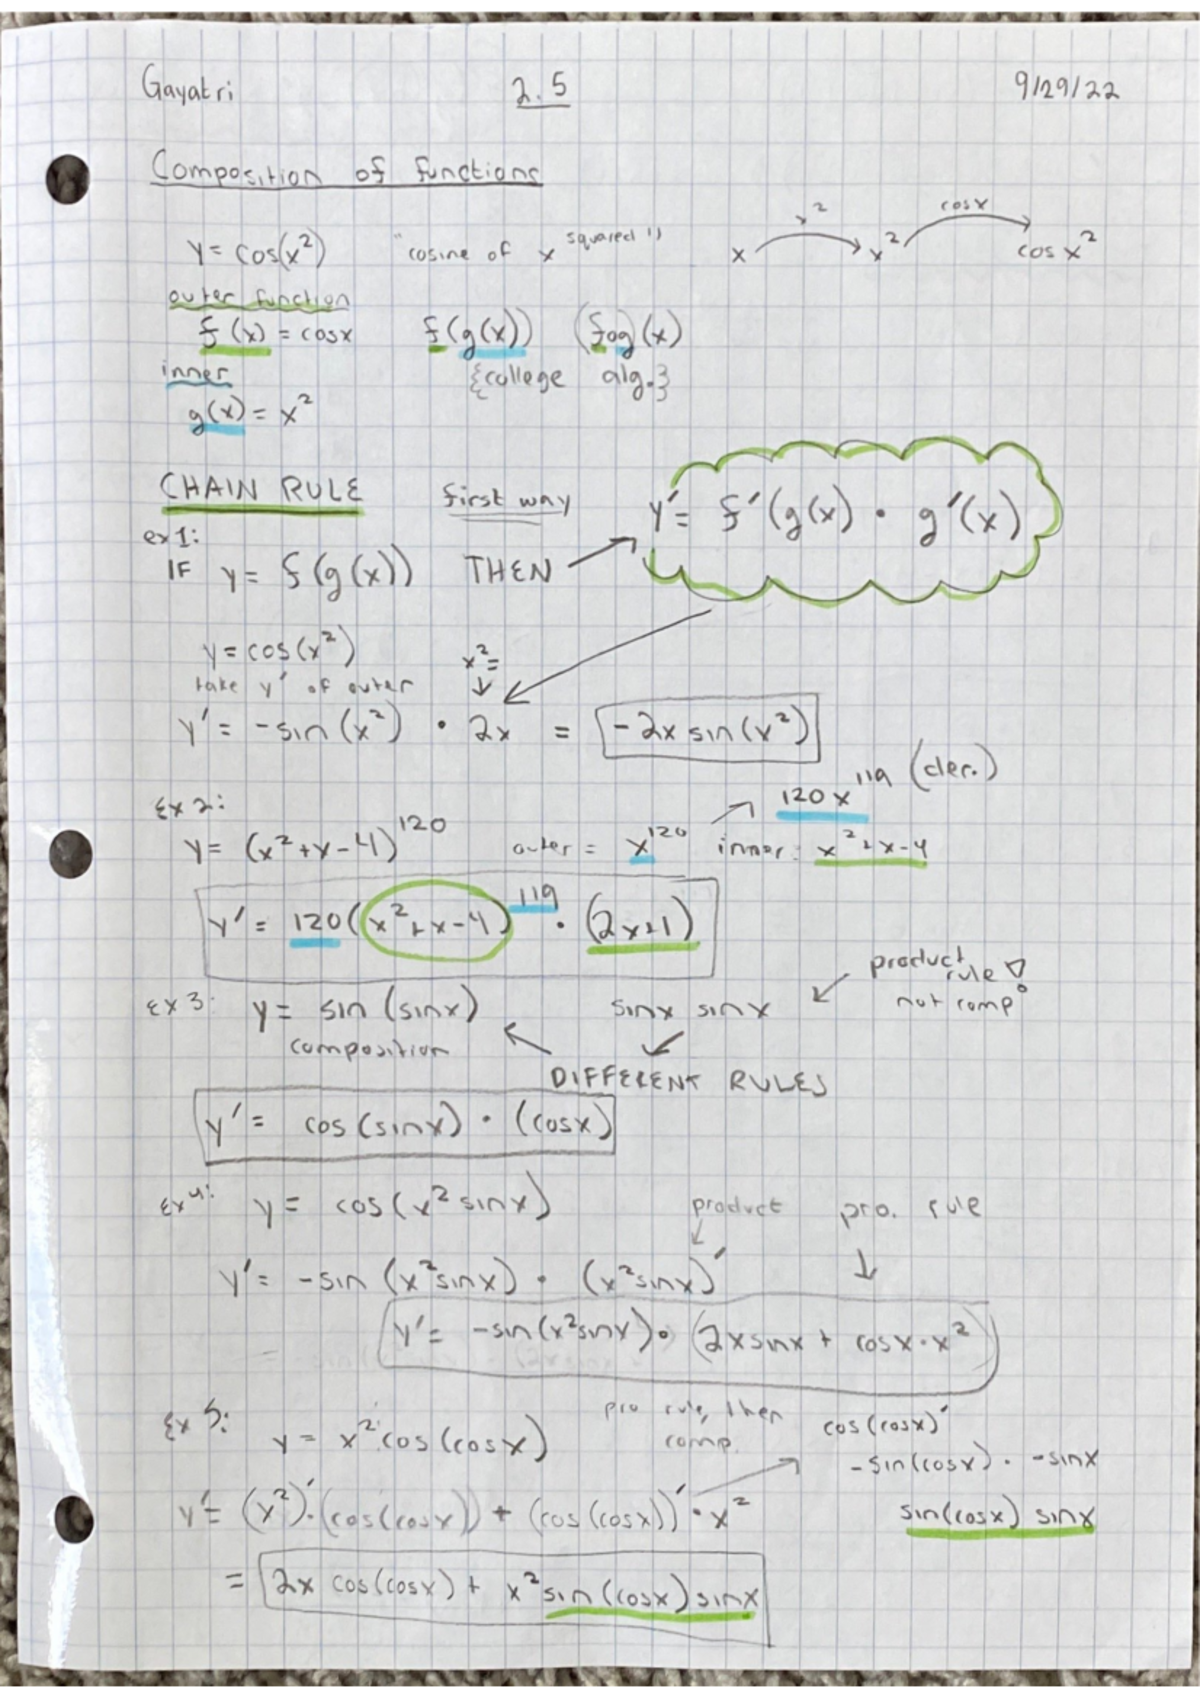 Gayatri 2.5 9/29/22
Composition of functions
y = cos(x²) "cosine of x squared" x x² x² cosx cos x²
outer function
f(x) = cosx f(g(x)) (fog)(x)
inner {college alg.}
g(x) = x²
CHAIN RULE first way y' = f'(g(x) · g'(x)
ex 1:
IF y = f(g(x)) THEN
y = cos(x²) x² =
take y' of outer
y' = -sin(x²) · 2x = -2x sin(x²)
Ex 2: 120x¹¹⁹ (der.)
y = (x²+x-4)¹²⁰ outer = x¹²⁰ inner: x²+x-4
y' = 120(x²+x-4)¹¹⁹ · (2x+1)
product rule!
not comp!
Ex 3: y = sin(sinx) sinx sinx
composition
DIFFERENT RULES
y' = cos(sinx) · (cosx)
Ex 4: y = cos(x² sinx) product pro. rule
y' = -sin(x²sinx) · (x²sinx)'
y' = -sin(x²sinx) · (2xsinx + cosx·x²)
Ex 5: y = x² cos(cosx) pro rule, then comp. cos(cosx)'
-sin(cosx) · -sinx
y' = (x²)'·(cos(cosx)) + (cos(cosx))'·x² sin(cosx) sinx
= 2x cos(cosx) + x² sin(cosx) sinx